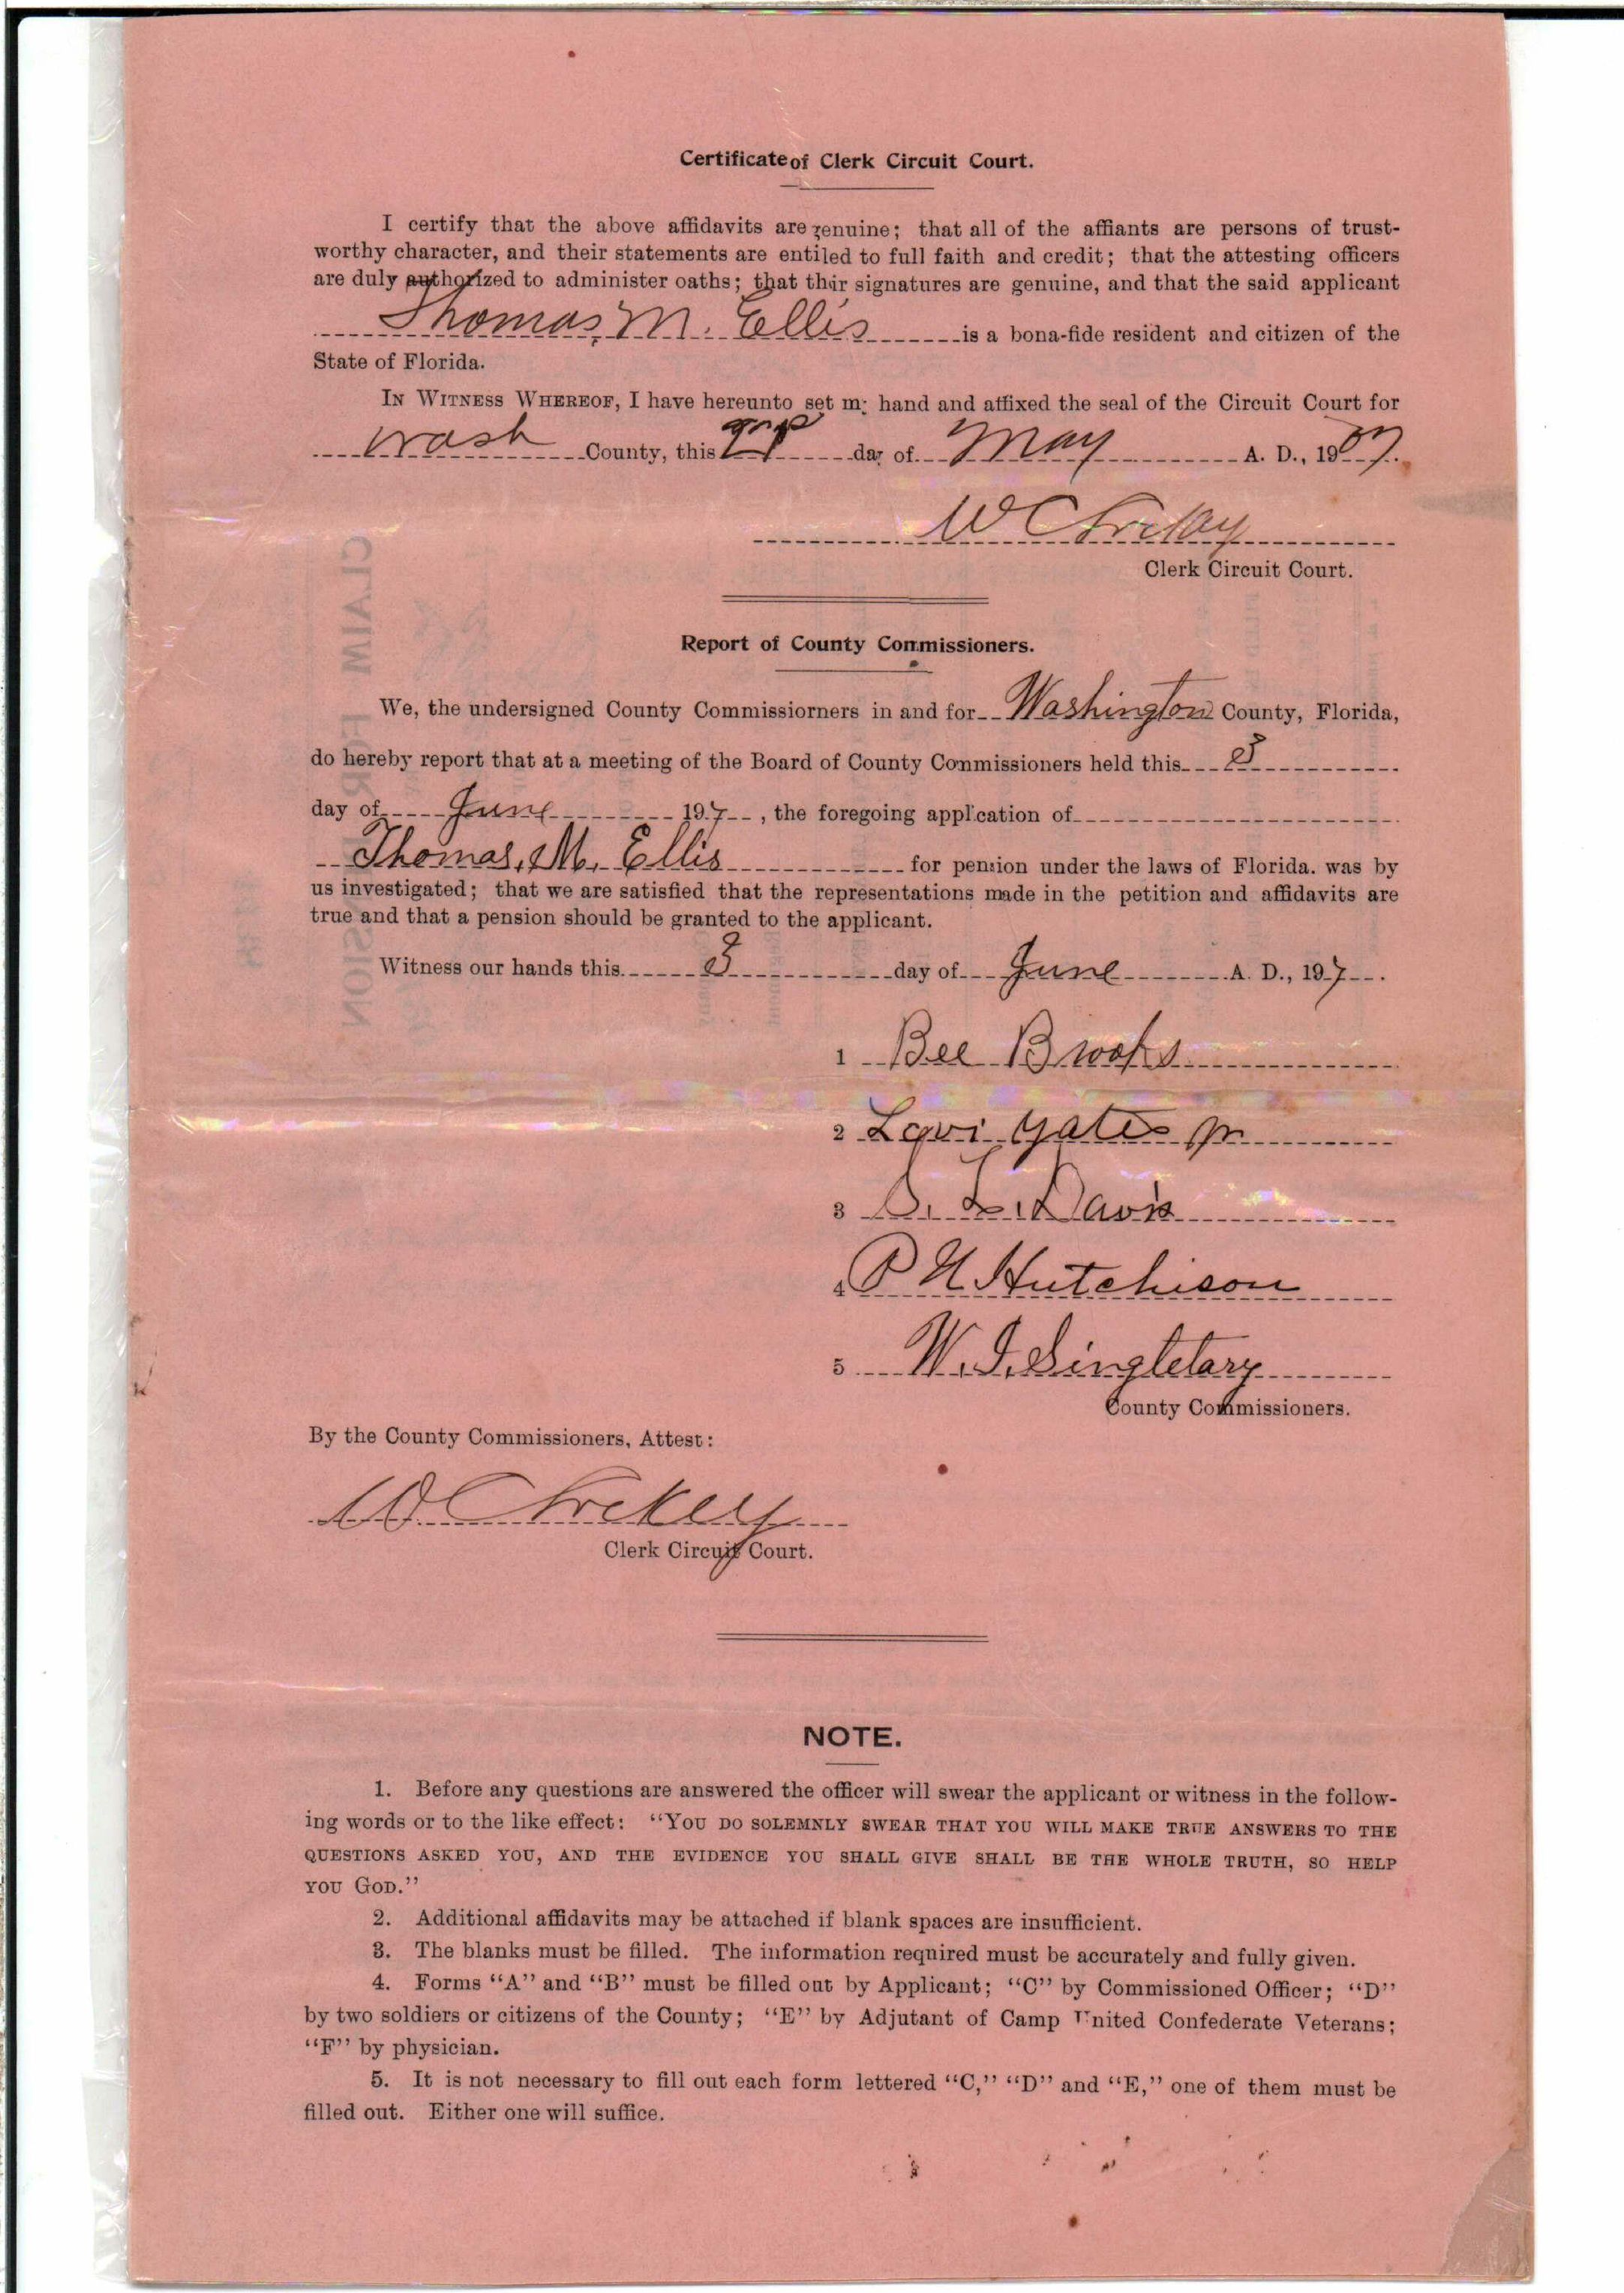 Certificate of Clerk Circuit Court.
I certify that the above affidavits are genuine; that all of the affiants are persons of trust-
worthy character, and their statements are entiled to full faith and credit; that the attesting officers
are duly authorized to administer oaths; that thir signatures are genuine, and that the said applicant
Thomas, M. Ellis is a bona-fide resident and citizen of the
State of Florida.
IN WITNESS WHEREOF, I have hereunto set my hand and affixed the seal of the Circuit Court for
Wash County, this day of May A. D., 1907.
W C
Clerk Circuit Court.
Report of County Commissioners.
We, the undersigned County Commissiorners in and for Washington County, Florida,
do hereby report that at a meeting of the Board of County Commissioners held this 3
day of June 197, the foregoing application of
Thomas, M. Ellis for pension under the laws of Florida. was by
us investigated; that we are satisfied that the representations made in the petition and affidavits are
true and that a pension should be granted to the applicant.
Witness our hands this 3 day of June A. D., 197.
1 Bee Brooks
2 Levi Yates Jr
3 S. L. Davis
4 P N Hutchison
5 W. I. Singletary
County Commissioners.
By the County Commissioners, Attest:
W C
Clerk Circuit Court.
NOTE.
1. Before any questions are answered the officer will swear the applicant or witness in the follow-
ing words or to the like effect: "YOU DO SOLEMNLY SWEAR THAT YOU WILL MAKE TRUE ANSWERS TO THE
QUESTIONS ASKED YOU, AND THE EVIDENCE YOU SHALL GIVE SHALL BE THE WHOLE TRUTH, SO HELP
YOU GOD."
2. Additional affidavits may be attached if blank spaces are insufficient.
3. The blanks must be filled. The information required must be accurately and fully given.
4. Forms "A" and "B" must be filled out by Applicant; "C" by Commissioned Officer; "D"
by two soldiers or citizens of the County; "E" by Adjutant of Camp United Confederate Veterans;
"F" by physician.
5. It is not necessary to fill out each form lettered "C," "D" and "E," one of them must be
filled out. Either one will suffice.